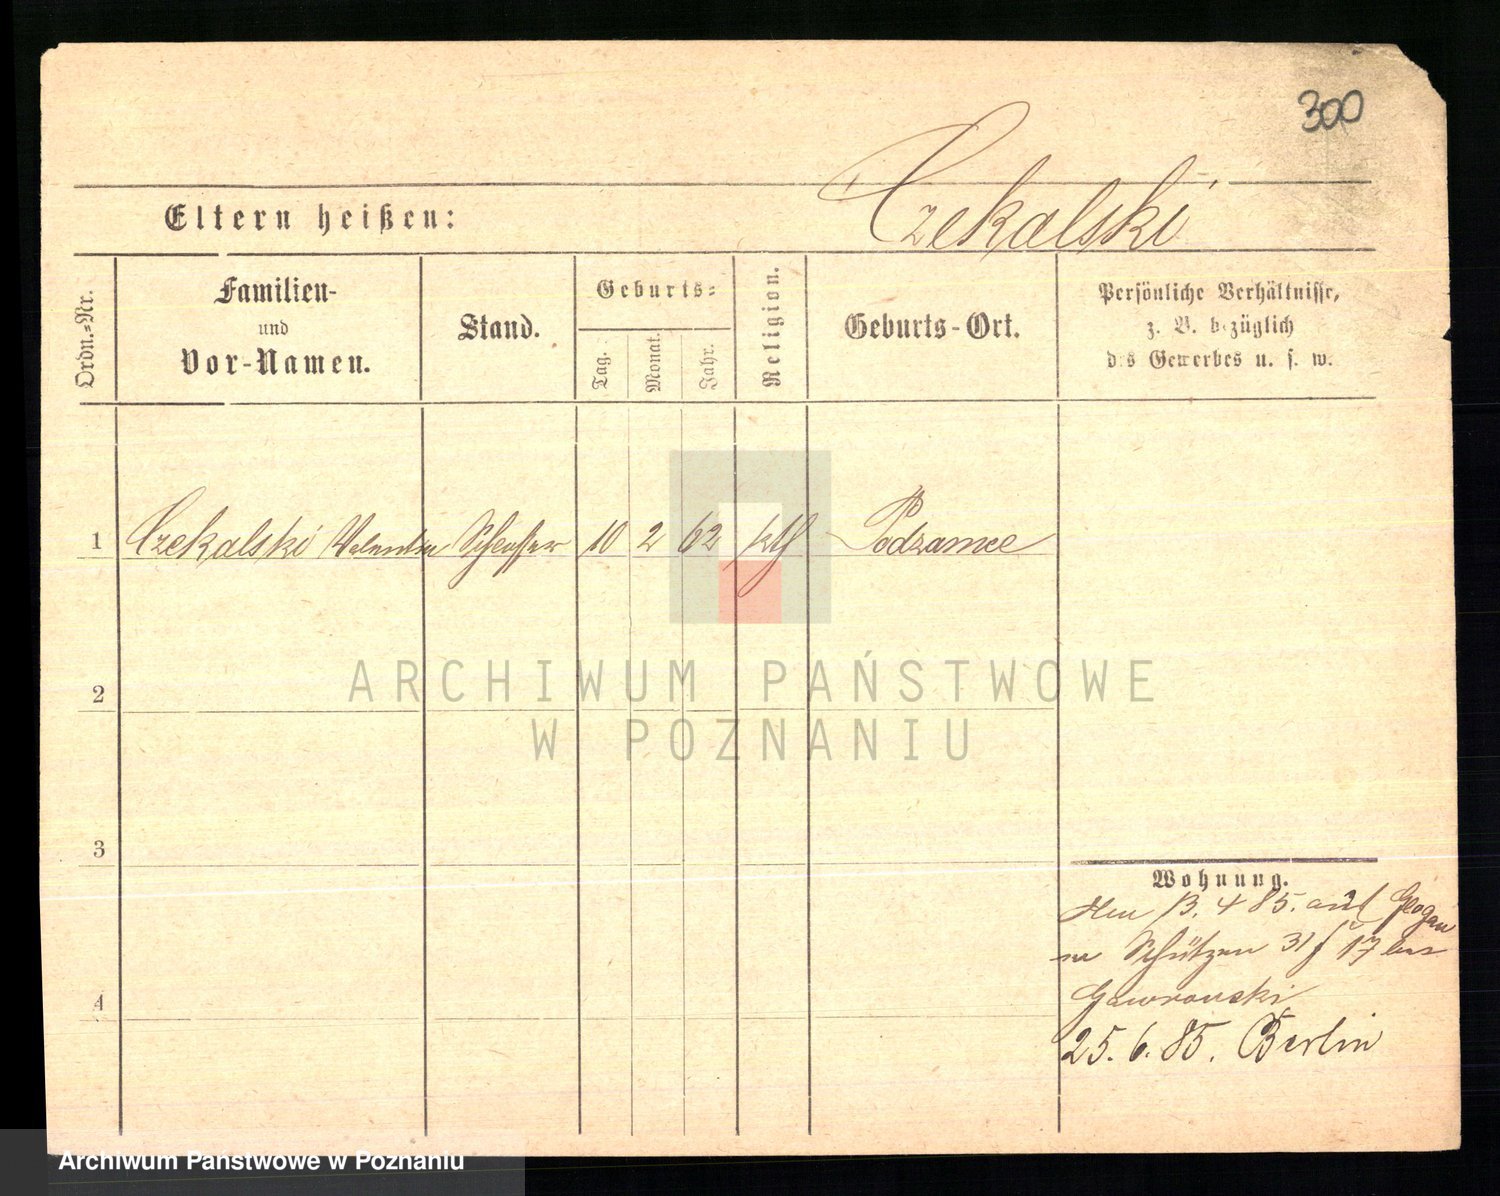 300
Czekalski
Eltern heißen:
Ordn.-Nr.
Familien-
und
Vor-Namen.
Stand.
Geburts-
Tag.
Monat.
Jahr.
Religion.
Geburts-Ort.
Persönliche Verhältnisse,
z. B. bezüglich
des Gewerbes u. s. w.
1 Czekalski Valentin Schlosser 10 2 62 kth Podzamce
2
3
4
Wohnung.
13. 4 85. aus Glogau
Schützen 31 17 bei
Gawronski
25. 6. 85. Berlin
ARCHIWUM PAŃSTWOWE
W POZNANIU
Archiwum Państwowe w Poznaniu